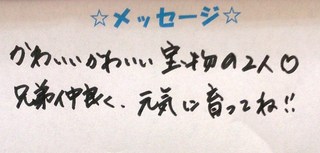 ☆メッセージ☆
かわいいかわいい宝物の2人♡
兄弟仲良く、元気に育ってね!!